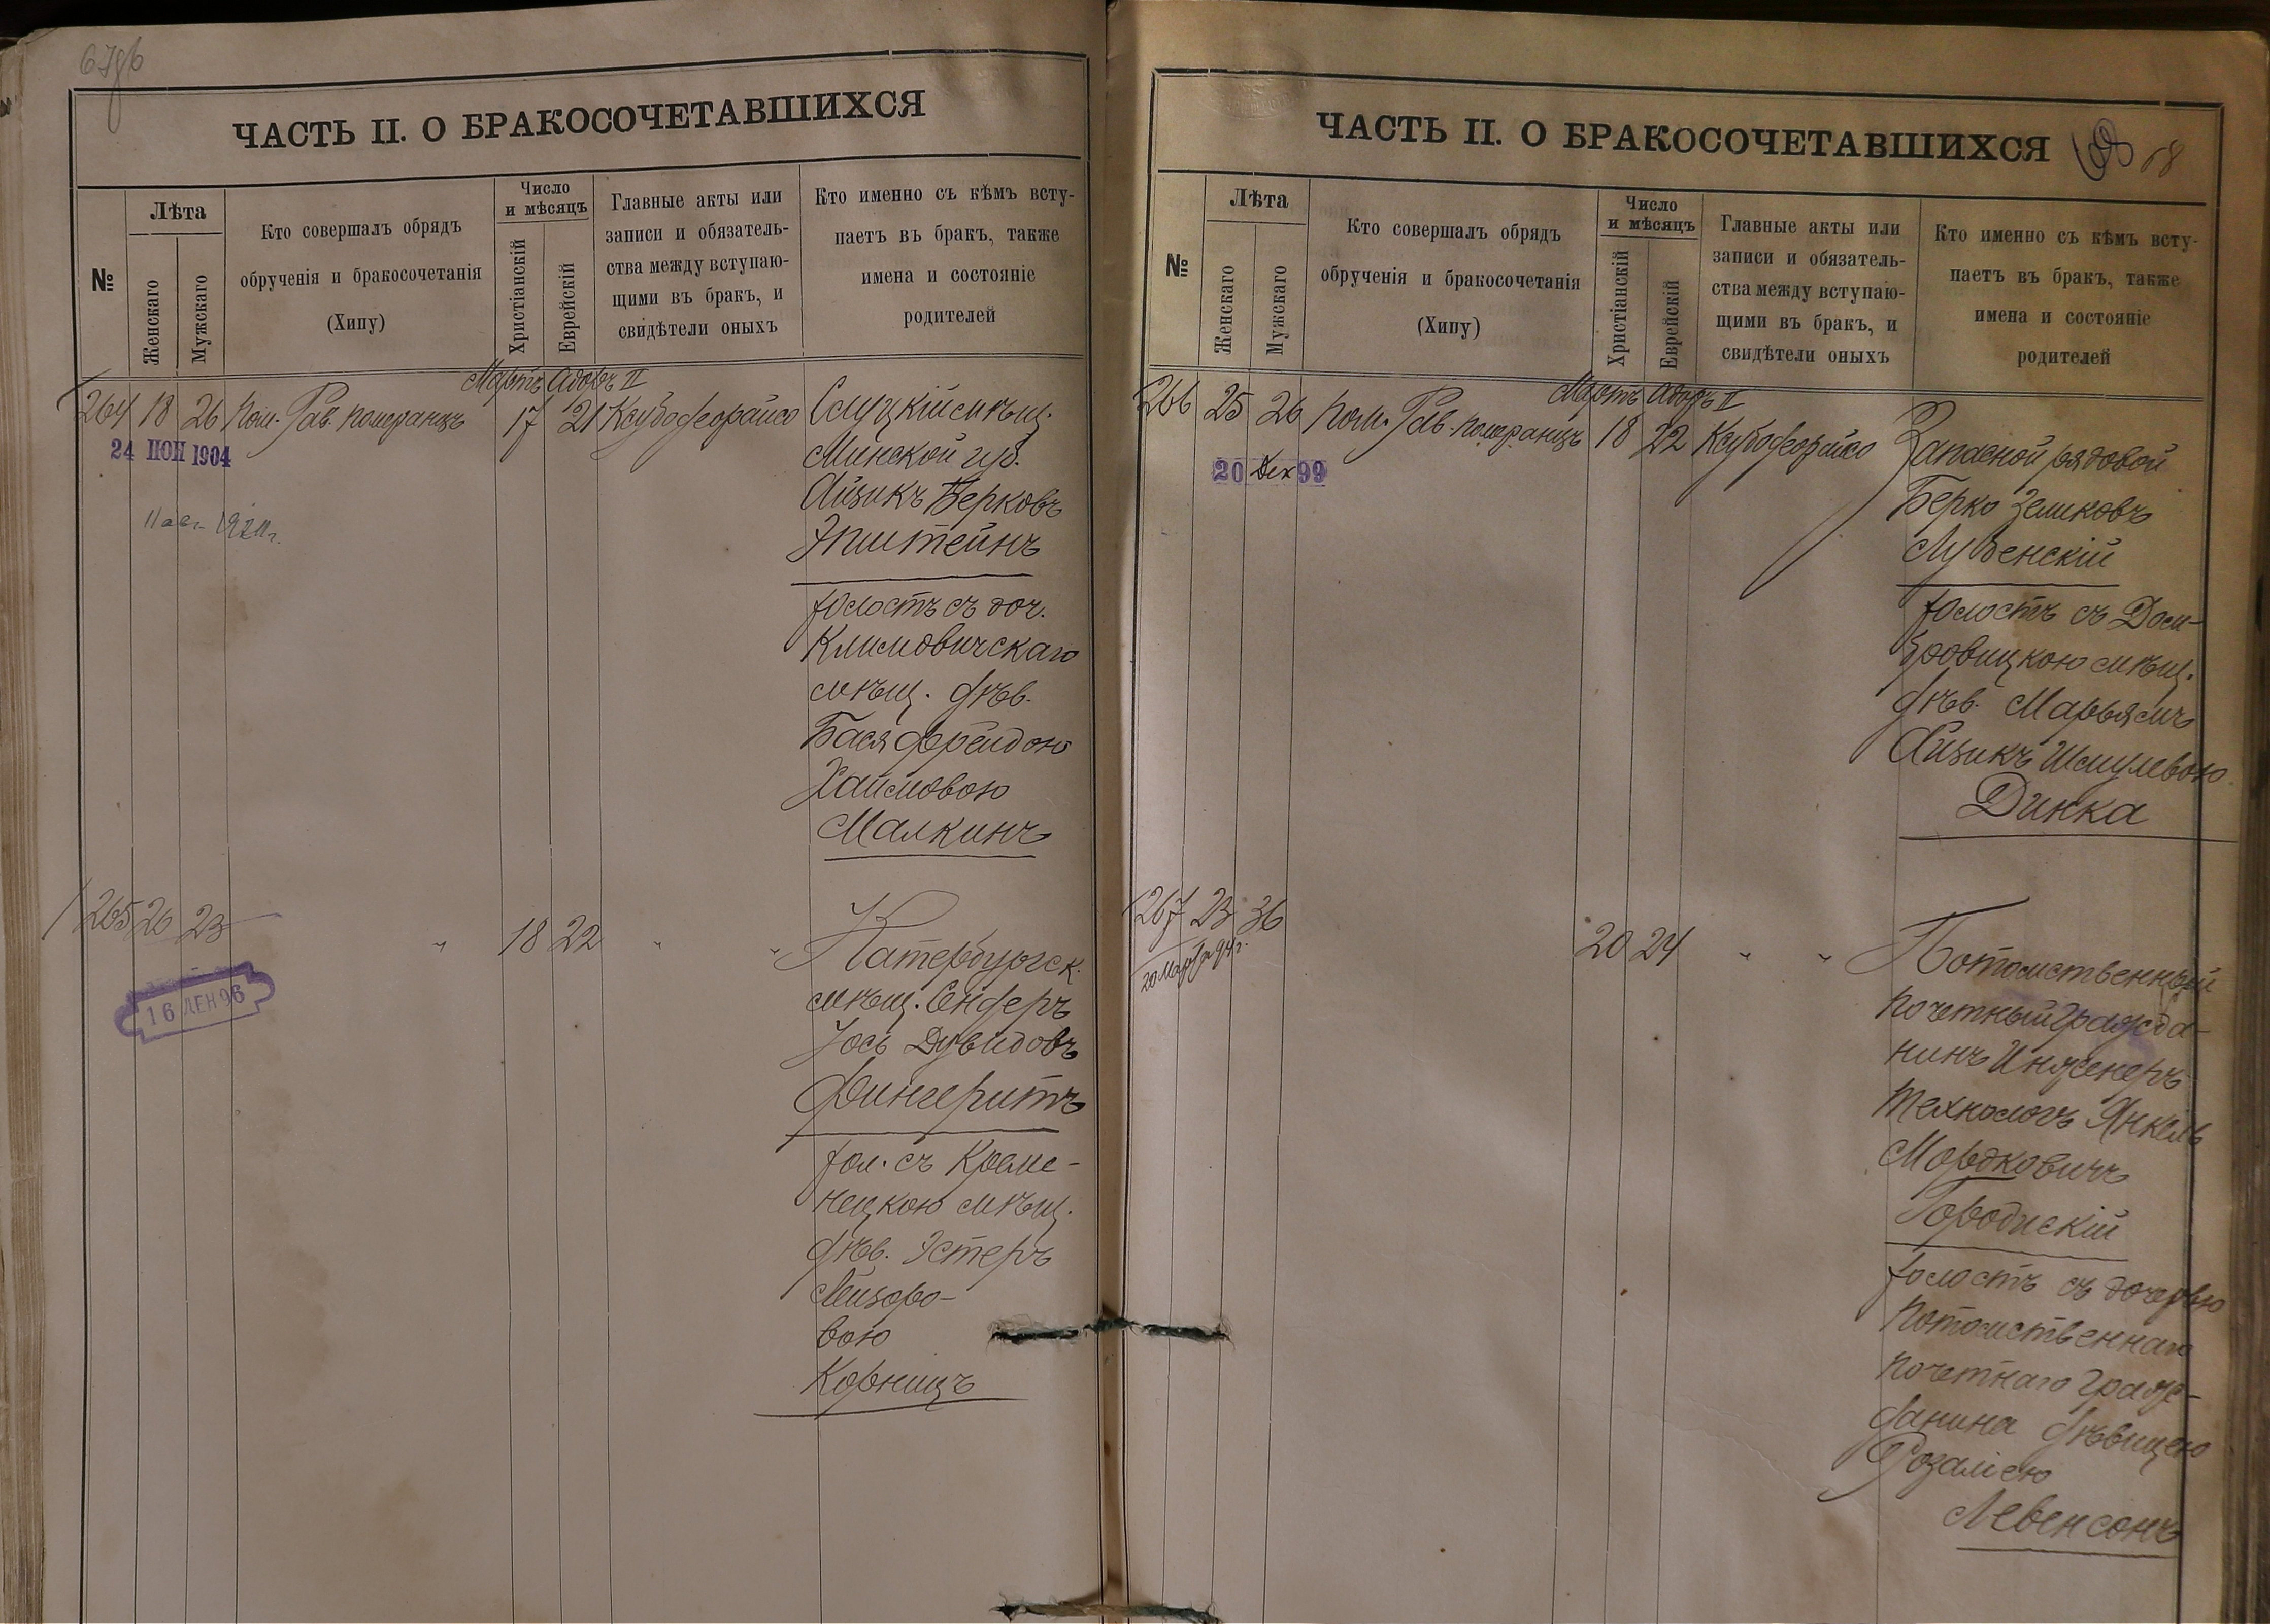 67об
ЧАСТЬ II. О БРАКОСОЧЕТАВШИХСЯ
№
Лѣта
Женскаго
Мужскаго
Кто совершалъ обрядъ
обрученія и бракосочетанія
(Хипу)
Число
и мѣсяцъ
Христіанскій
Еврейскій
Главные акты или
записи и обязатель-
ства между вступаю-
щими въ бракъ, и
свидѣтели оныхъ
Кто именно съ кѣмъ всту-
паетъ въ бракъ, также
имена и состояніе
родителей
Мартъ Адоръ II
264 18 26 Пом. Рав. Померанцъ 17 21
24 ІЮН 1904
Слуцкій мѣщ.
Минской губ.
Айзикъ Берковъ
Эпштейнъ
холостъ съ доч.
Климовичскаго
мѣщ. дѣв.
Бася Фрейдою
Хаимовою
Малкинъ
265 20 23 " 18 22 " "
16 ДЕН 96
Катербургск.
мѣщ. Сендеръ
Іось Дувидовъ
Фингеритъ
хол. съ Креме-
нецкою мѣщ.
дѣв. Эстеръ
Лейзоро-
вою
Корницъ
ЧАСТЬ II. О БРАКОСОЧЕТАВШИХСЯ
68
№
Лѣта
Женскаго
Мужскаго
Кто совершалъ обрядъ
обрученія и бракосочетанія
(Хипу)
Число
и мѣсяцъ
Христіанскій
Еврейскій
Главные акты или
записи и обязатель-
ства между вступаю-
щими въ бракъ, и
свидѣтели оныхъ
Кто именно съ кѣмъ всту-
паетъ въ бракъ, также
имена и состояніе
родителей
Мартъ Адоръ II
266 25 26 Пом. Рав. Померанцъ 18 22
20 Дек 99
Запасной рядовой
Берко Зеликовъ
Лубенскій
холостъ съ Дом-
бровицкою мѣщ.
дѣв. Марьямъ
Айзикъ Шмулевою
Динка
267 23 36 20 24 " "
20 Марта 94 г.
Потомственный
почетный гражда-
нинъ Инженеръ
Технологъ Янкель
Мордковичъ
Городискій
холостъ съ дочерью
потомственнаго
почетнаго граж-
данина дѣвицею
Розаліею
Левенсонъ